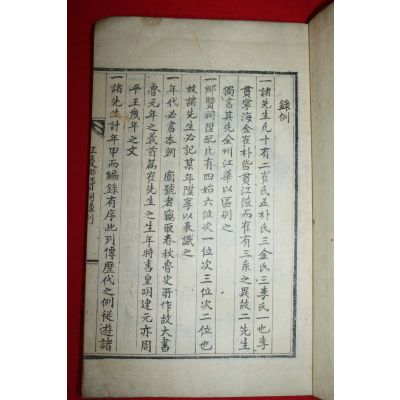 錄例
一諸先生凡十有二崔氏五朴氏三金氏三李氏一也李
貫寧海金崔朴皆貫江陵而崔有三系之異故二先生
獨言其先全州江華以區別之
一鄕賢祠陞配凡有四始六位次一位次三位次二位也
故諸先生必記某年陞享以表識之
一年代必書本朝 廟號者竊取春秋魯史所作故大書
魯元年之義首篇崔先生之生年特書皇明建元亦周
平王幾年之文
一諸先生計年甲而編錄有序此列傳歷代之例從遊諸
江陵鄕賢祠錄例